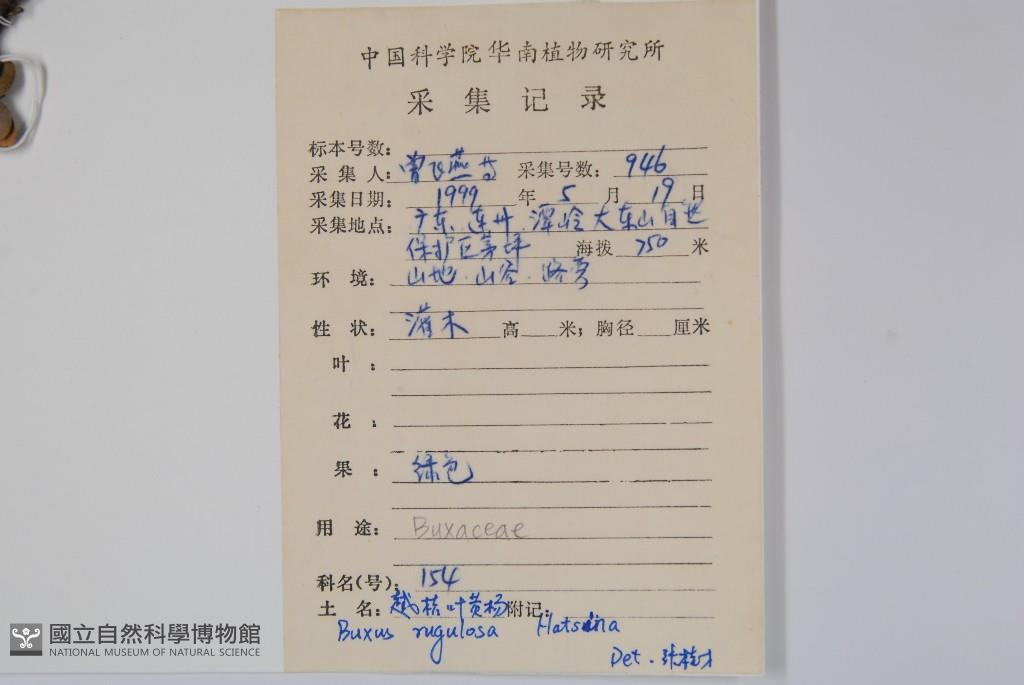 中国科学院华南植物研究所
采集记录
标本号数：
采集人：曾飞燕等 采集号数：946
采集日期：1999年5月19日
采集地点：广东.连州.潭岭大东山自然
保护区茅坪 海拨750米
环境：山地.山谷.路旁
性状：灌木 高 米；胸径 厘米
叶：
花：
果：绿色
用途：Buxaceae
科名(号)：154
土名：越桔叶黄杨 附记：
Buxus rugulosa Hatsuina
Det. 张桂才
國立自然科學博物館
NATIONAL MUSEUM OF NATURAL SCIENCE